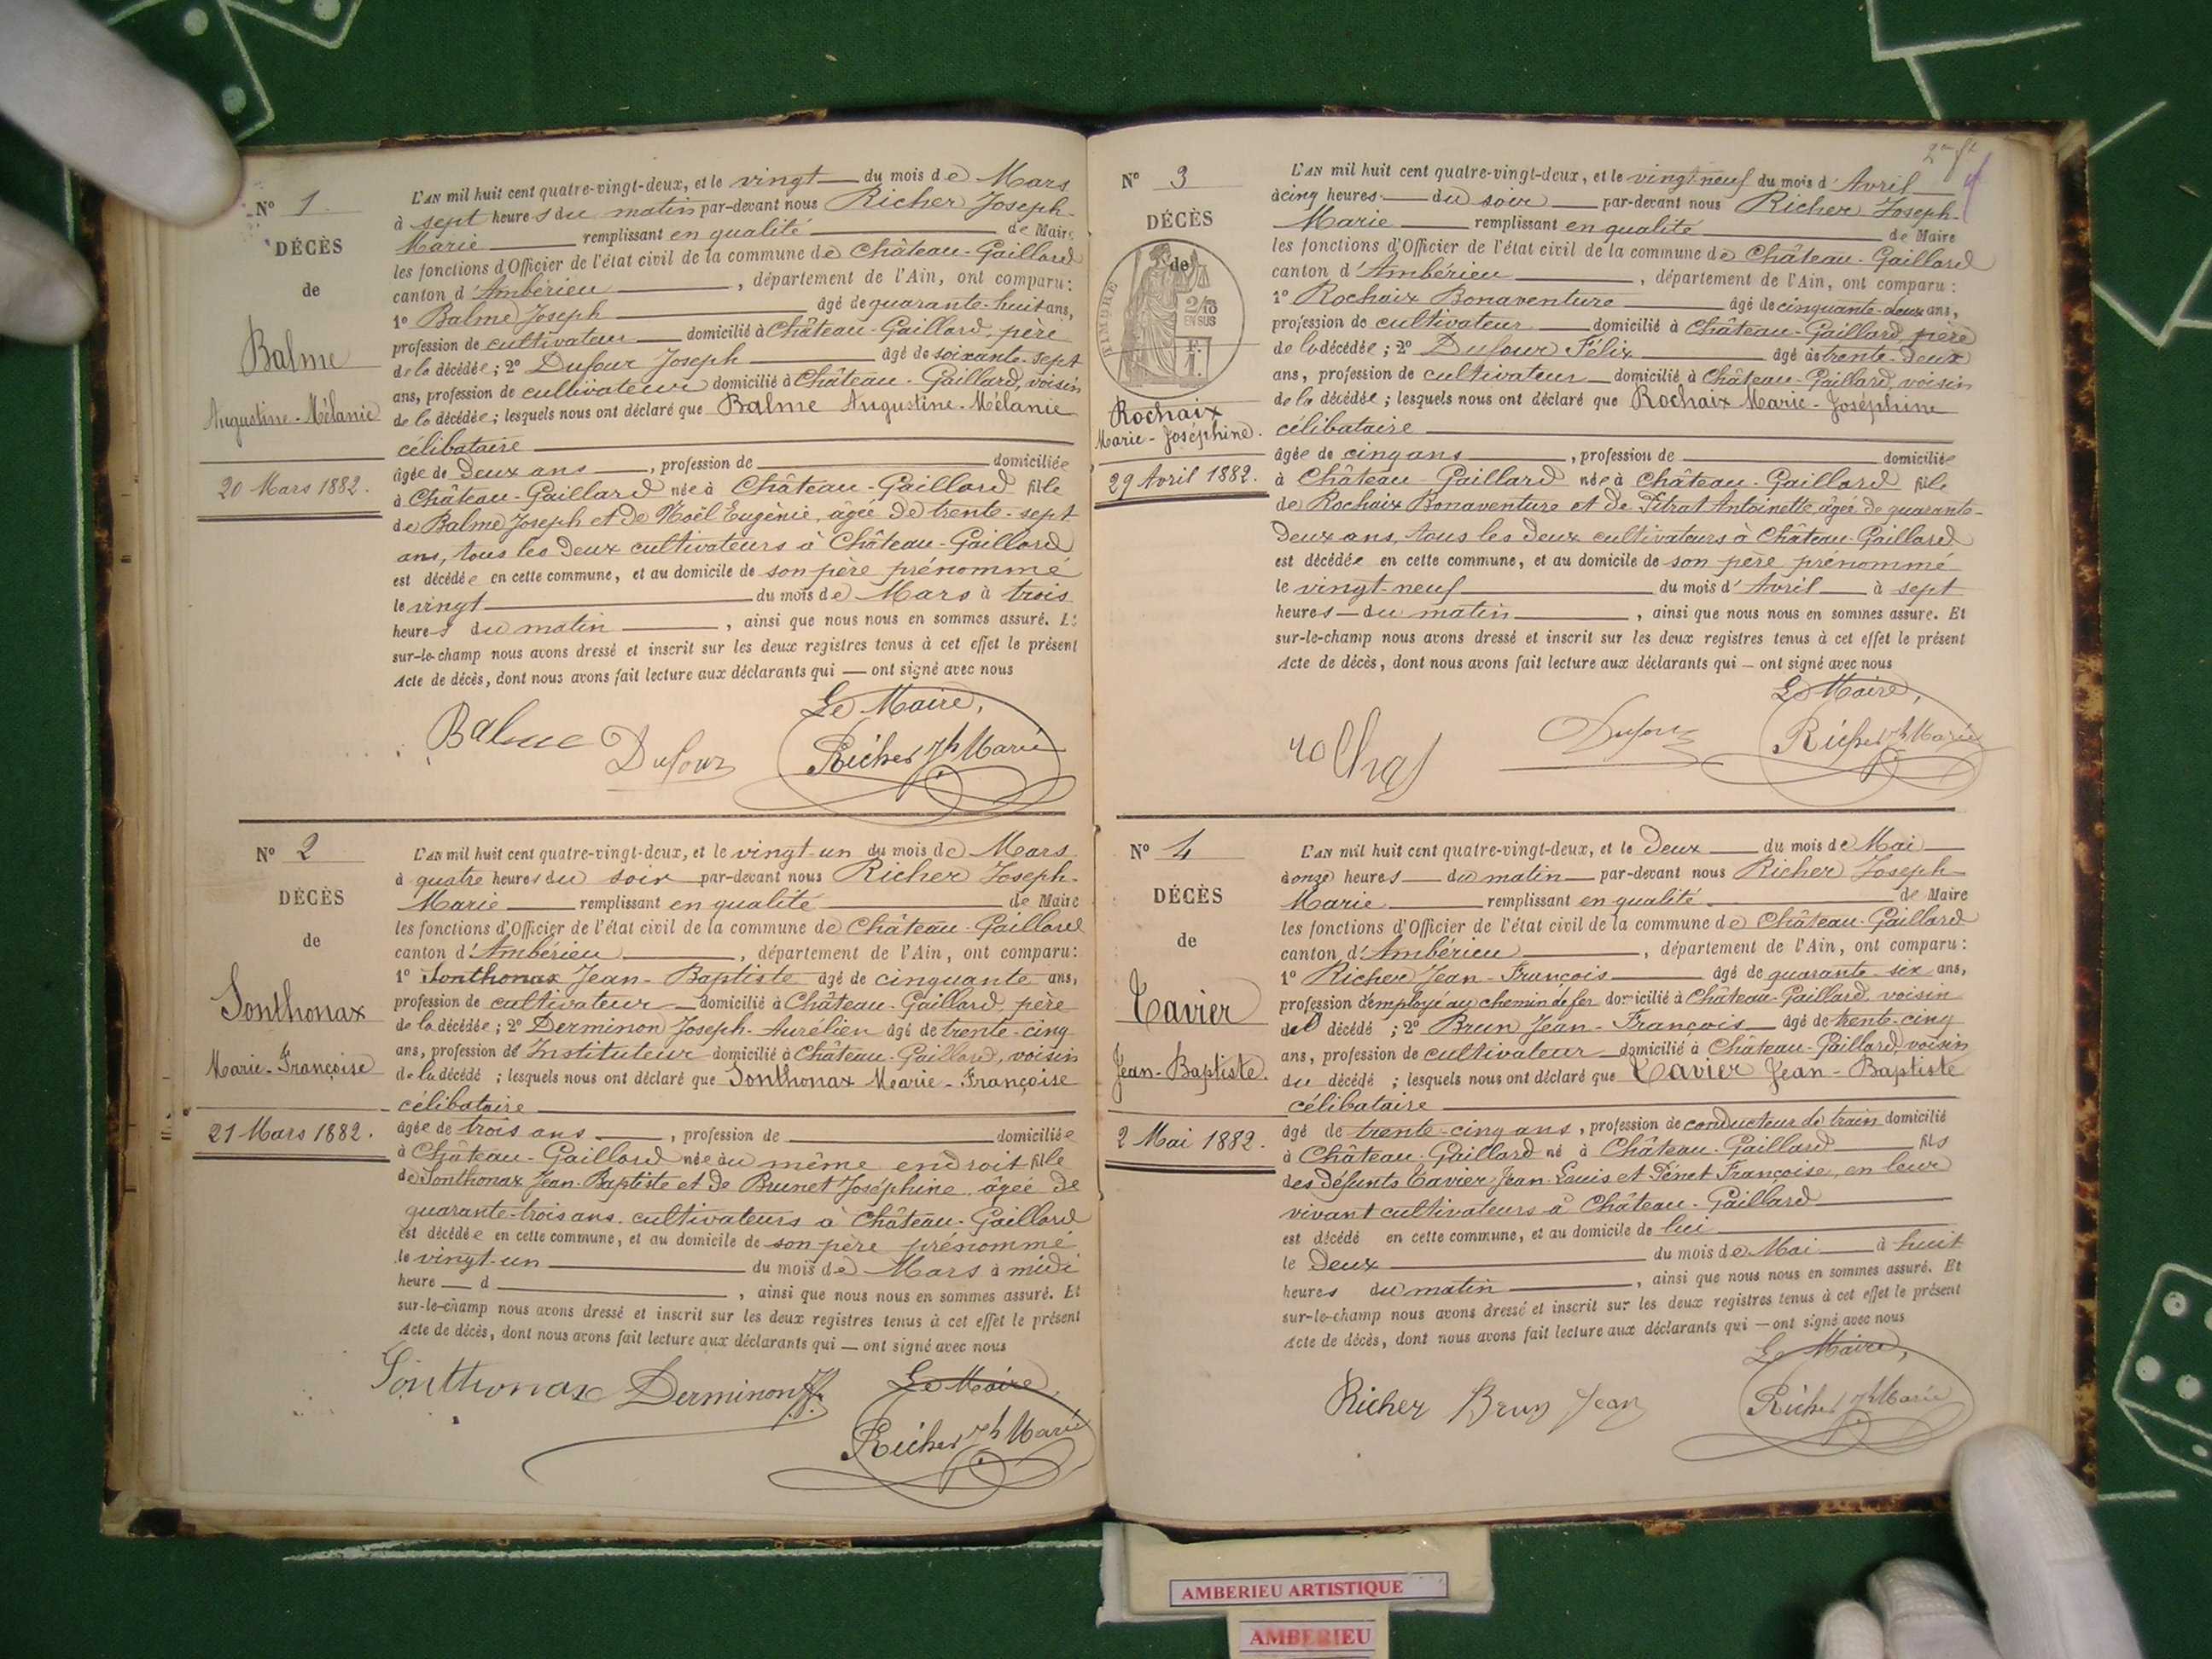 N° 1
DÉCÈS
de
Balme
Augustine-Mélanie
20 Mars 1882.
L'AN mil huit cent quatre-vingt-deux, et le vingt du mois de Mars
à sept heures du matin par-devant nous Richer Joseph-
Marie remplissant en qualité de Maire
les fonctions d'Officier de l'état civil de la commune de Château-Gaillard
canton d'Ambérieu, département de l'Ain, ont comparu:
1° Balme Joseph âgé de quarante-huit ans,
profession de cultivateur domicilié à Château-Gaillard, père
de la décédée; 2° Dufour Joseph âgé de soixante-sept
ans, profession de cultivateur domicilié à Château-Gaillard, voisin
de la décédée; lesquels nous ont déclaré que Balme Augustine-Mélanie
célibataire
âgée de deux ans, profession de domiciliée
à Château-Gaillard née à Château-Gaillard fille
de Balme Joseph et de Noël Eugénie, âgée de trente-sept
ans, tous les deux cultivateurs à Château-Gaillard
est décédée en cette commune, et au domicile de son père prénommé
le vingt du mois de Mars à trois
heures du matin, ainsi que nous nous en sommes assuré. Et
sur-le-champ nous avons dressé et inscrit sur les deux registres tenus à cet effet le présent
Acte de décès, dont nous avons fait lecture aux déclarants qui — ont signé avec nous
Le Maire,
Balme Dufour Richer Jh Marie
N° 2
DÉCÈS
de
Sonthonax
Marie-Françoise
21 Mars 1882.
L'AN mil huit cent quatre-vingt-deux, et le vingt-un du mois de Mars
à quatre heures du soir par-devant nous Richer Joseph-
Marie remplissant en qualité de Maire
les fonctions d'Officier de l'état civil de la commune de Château-Gaillard
canton d'Ambérieu, département de l'Ain, ont comparu:
1° Sonthonax Jean-Baptiste âgé de cinquante ans,
profession de cultivateur domicilié à Château-Gaillard, père
de la décédée; 2° Derminon Joseph-Aurélien âgé de trente-cinq
ans, profession d'Instituteur domicilié à Château-Gaillard, voisin
de la décédé; lesquels nous ont déclaré que Sonthonax Marie-Françoise
célibataire
âgée de trois ans, profession de domiciliée
à Château-Gaillard née au même endroit fille
de Sonthonax Jean-Baptiste et de Brunet Joséphine, âgée de
quarante-trois ans, cultivateurs à Château-Gaillard
est décédée en cette commune, et au domicile de son père prénommé
le vingt-un du mois de Mars à midi
heure d, ainsi que nous nous en sommes assuré. Et
sur-le-champ nous avons dressé et inscrit sur les deux registres tenus à cet effet le présent
Acte de décès, dont nous avons fait lecture aux déclarants qui — ont signé avec nous
Le Maire,
Sonthonax Derminon Richer Jh Marie
N° 3
DÉCÈS
de
TIMBRE
2/10
EN SUS
Rochaix
Marie-Joséphine.
29 Avril 1882.
L'AN mil huit cent quatre-vingt-deux, et le vingt neuf du mois d'Avril
à cinq heures du soir par-devant nous Richer Joseph-
Marie remplissant en qualité de Maire
les fonctions d'Officier de l'état civil de la commune de Château-Gaillard
canton d'Ambérieu, département de l'Ain, ont comparu:
1° Rochaix Bonaventure âgé de cinquante-deux ans,
profession de cultivateur domicilié à Château-Gaillard, père
de la décédée; 2° Dufour Félix âgé de trente-deux
ans, profession de cultivateur domicilié à Château-Gaillard, voisin
de la décédée; lesquels nous ont déclaré que Rochaix Marie-Joséphine
célibataire
âgée de cinq ans, profession de domiciliée
à Château-Gaillard née à Château-Gaillard fille
de Rochaix Bonaventure et de Pitrat Antoinette, âgée de quarante-
deux ans, tous les deux cultivateurs à Château-Gaillard
est décédée en cette commune, et au domicile de son père prénommé
le vingt-neuf du mois d'Avril à sept
heures du matin, ainsi que nous nous en sommes assuré. Et
sur-le-champ nous avons dressé et inscrit sur les deux registres tenus à cet effet le présent
Acte de décès, dont nous avons fait lecture aux déclarants qui — ont signé avec nous
Le Maire,
Dufour Richer Jh Marie
N° 4
DÉCÈS
de
Tavier
Jean-Baptiste.
2 Mai 1882.
L'AN mil huit cent quatre-vingt-deux, et le deux du mois de Mai
à onze heures du matin par-devant nous Richer Joseph-
Marie remplissant en qualité de Maire
les fonctions d'Officier de l'état civil de la commune de Château-Gaillard
canton d'Ambérieu, département de l'Ain, ont comparu:
1° Richer Jean-François âgé de quarante-six ans,
profession d'employé au chemin de fer domicilié à Château-Gaillard, voisin
du décédé; 2° Brun Jean-François âgé de trente-cinq
ans, profession de cultivateur domicilié à Château-Gaillard, voisin
du décédé; lesquels nous ont déclaré que Tavier Jean-Baptiste
célibataire
âgé de trente-cinq ans, profession de conducteur de train domicilié
à Château-Gaillard né à Château-Gaillard fils
des défunts Tavier Jean-Louis et Pénet Françoise, en leur
vivant cultivateurs à Château-Gaillard
est décédé en cette commune, et au domicile de lui
le deux du mois de Mai à huit
heures du matin, ainsi que nous nous en sommes assuré. Et
sur-le-champ nous avons dressé et inscrit sur les deux registres tenus à cet effet le présent
Acte de décès, dont nous avons fait lecture aux déclarants qui — ont signé avec nous
Le Maire,
Richer Brun Jean Richer Jh Marie
AMBERIEU ARTISTIQUE
AMBERIEU